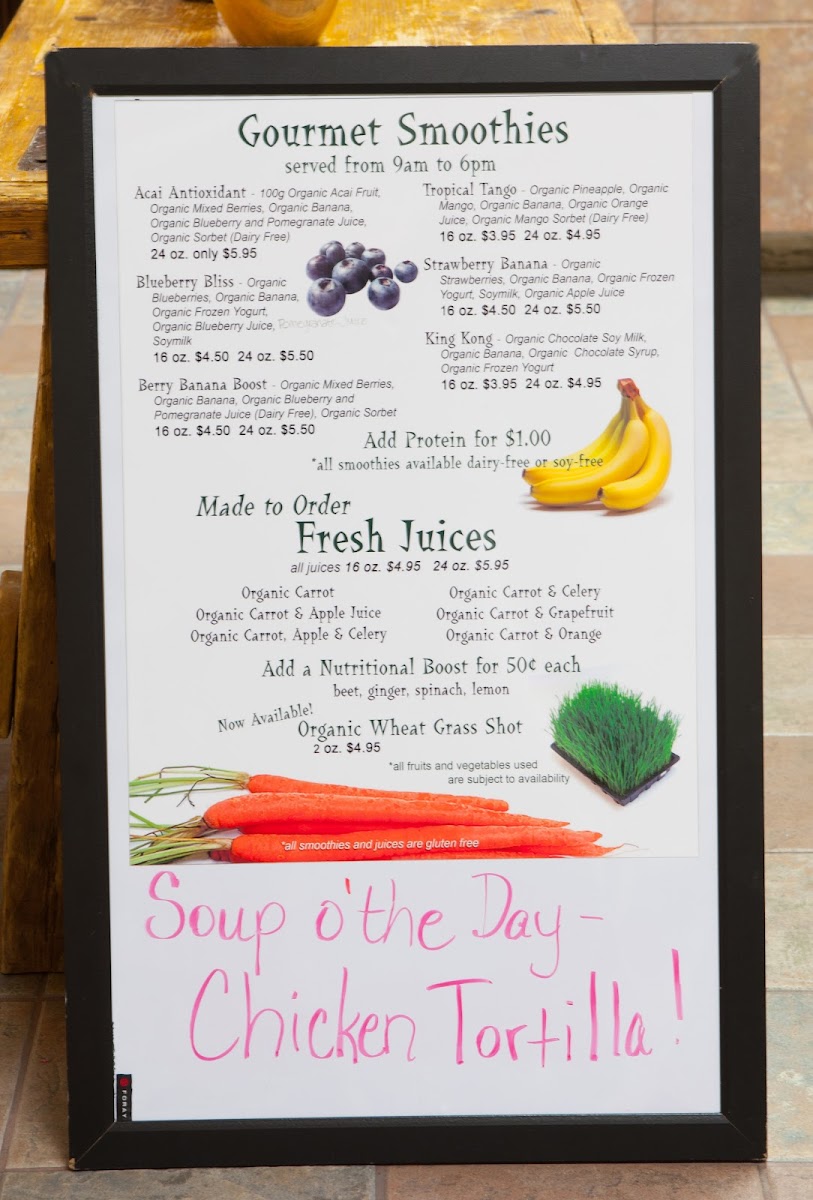 Gourmet Smoothies
served from 9am to 6pm
Acai Antioxidant - 100g Organic Acai Fruit,
Organic Mixed Berries, Organic Banana,
Organic Blueberry and Pomegranate Juice,
Organic Sorbet (Dairy Free)
24 oz. only $5.95
Blueberry Bliss - Organic
Blueberries, Organic Banana,
Organic Frozen Yogurt,
Organic Blueberry Juice, Pomegranate Juice
Soymilk
16 oz. $4.50 24 oz. $5.50
Berry Banana Boost - Organic Mixed Berries,
Organic Banana, Organic Blueberry and
Pomegranate Juice (Dairy Free), Organic Sorbet
16 oz. $4.50 24 oz. $5.50
Tropical Tango - Organic Pineapple, Organic
Mango, Organic Banana, Organic Orange
Juice, Organic Mango Sorbet (Dairy Free)
16 oz. $3.95 24 oz. $4.95
Strawberry Banana - Organic
Strawberries, Organic Banana, Organic Frozen
Yogurt, Soymilk, Organic Apple Juice
16 oz. $4.50 24 oz. $5.50
King Kong - Organic Chocolate Soy Milk,
Organic Banana, Organic Chocolate Syrup,
Organic Frozen Yogurt
16 oz. $3.95 24 oz. $4.95
Add Protein for $1.00
*all smoothies available dairy-free or soy-free
Made to Order
Fresh Juices
all juices 16 oz. $4.95 24 oz. $5.95
Organic Carrot
Organic Carrot & Apple Juice
Organic Carrot, Apple & Celery
Organic Carrot & Celery
Organic Carrot & Grapefruit
Organic Carrot & Orange
Add a Nutritional Boost for 50¢ each
beet, ginger, spinach, lemon
Now Available!
Organic Wheat Grass Shot
2 oz. $4.95
*all fruits and vegetables used
are subject to availability
*all smoothies and juices are gluten free
Soup o'the Day -
Chicken Tortilla!
FORAY